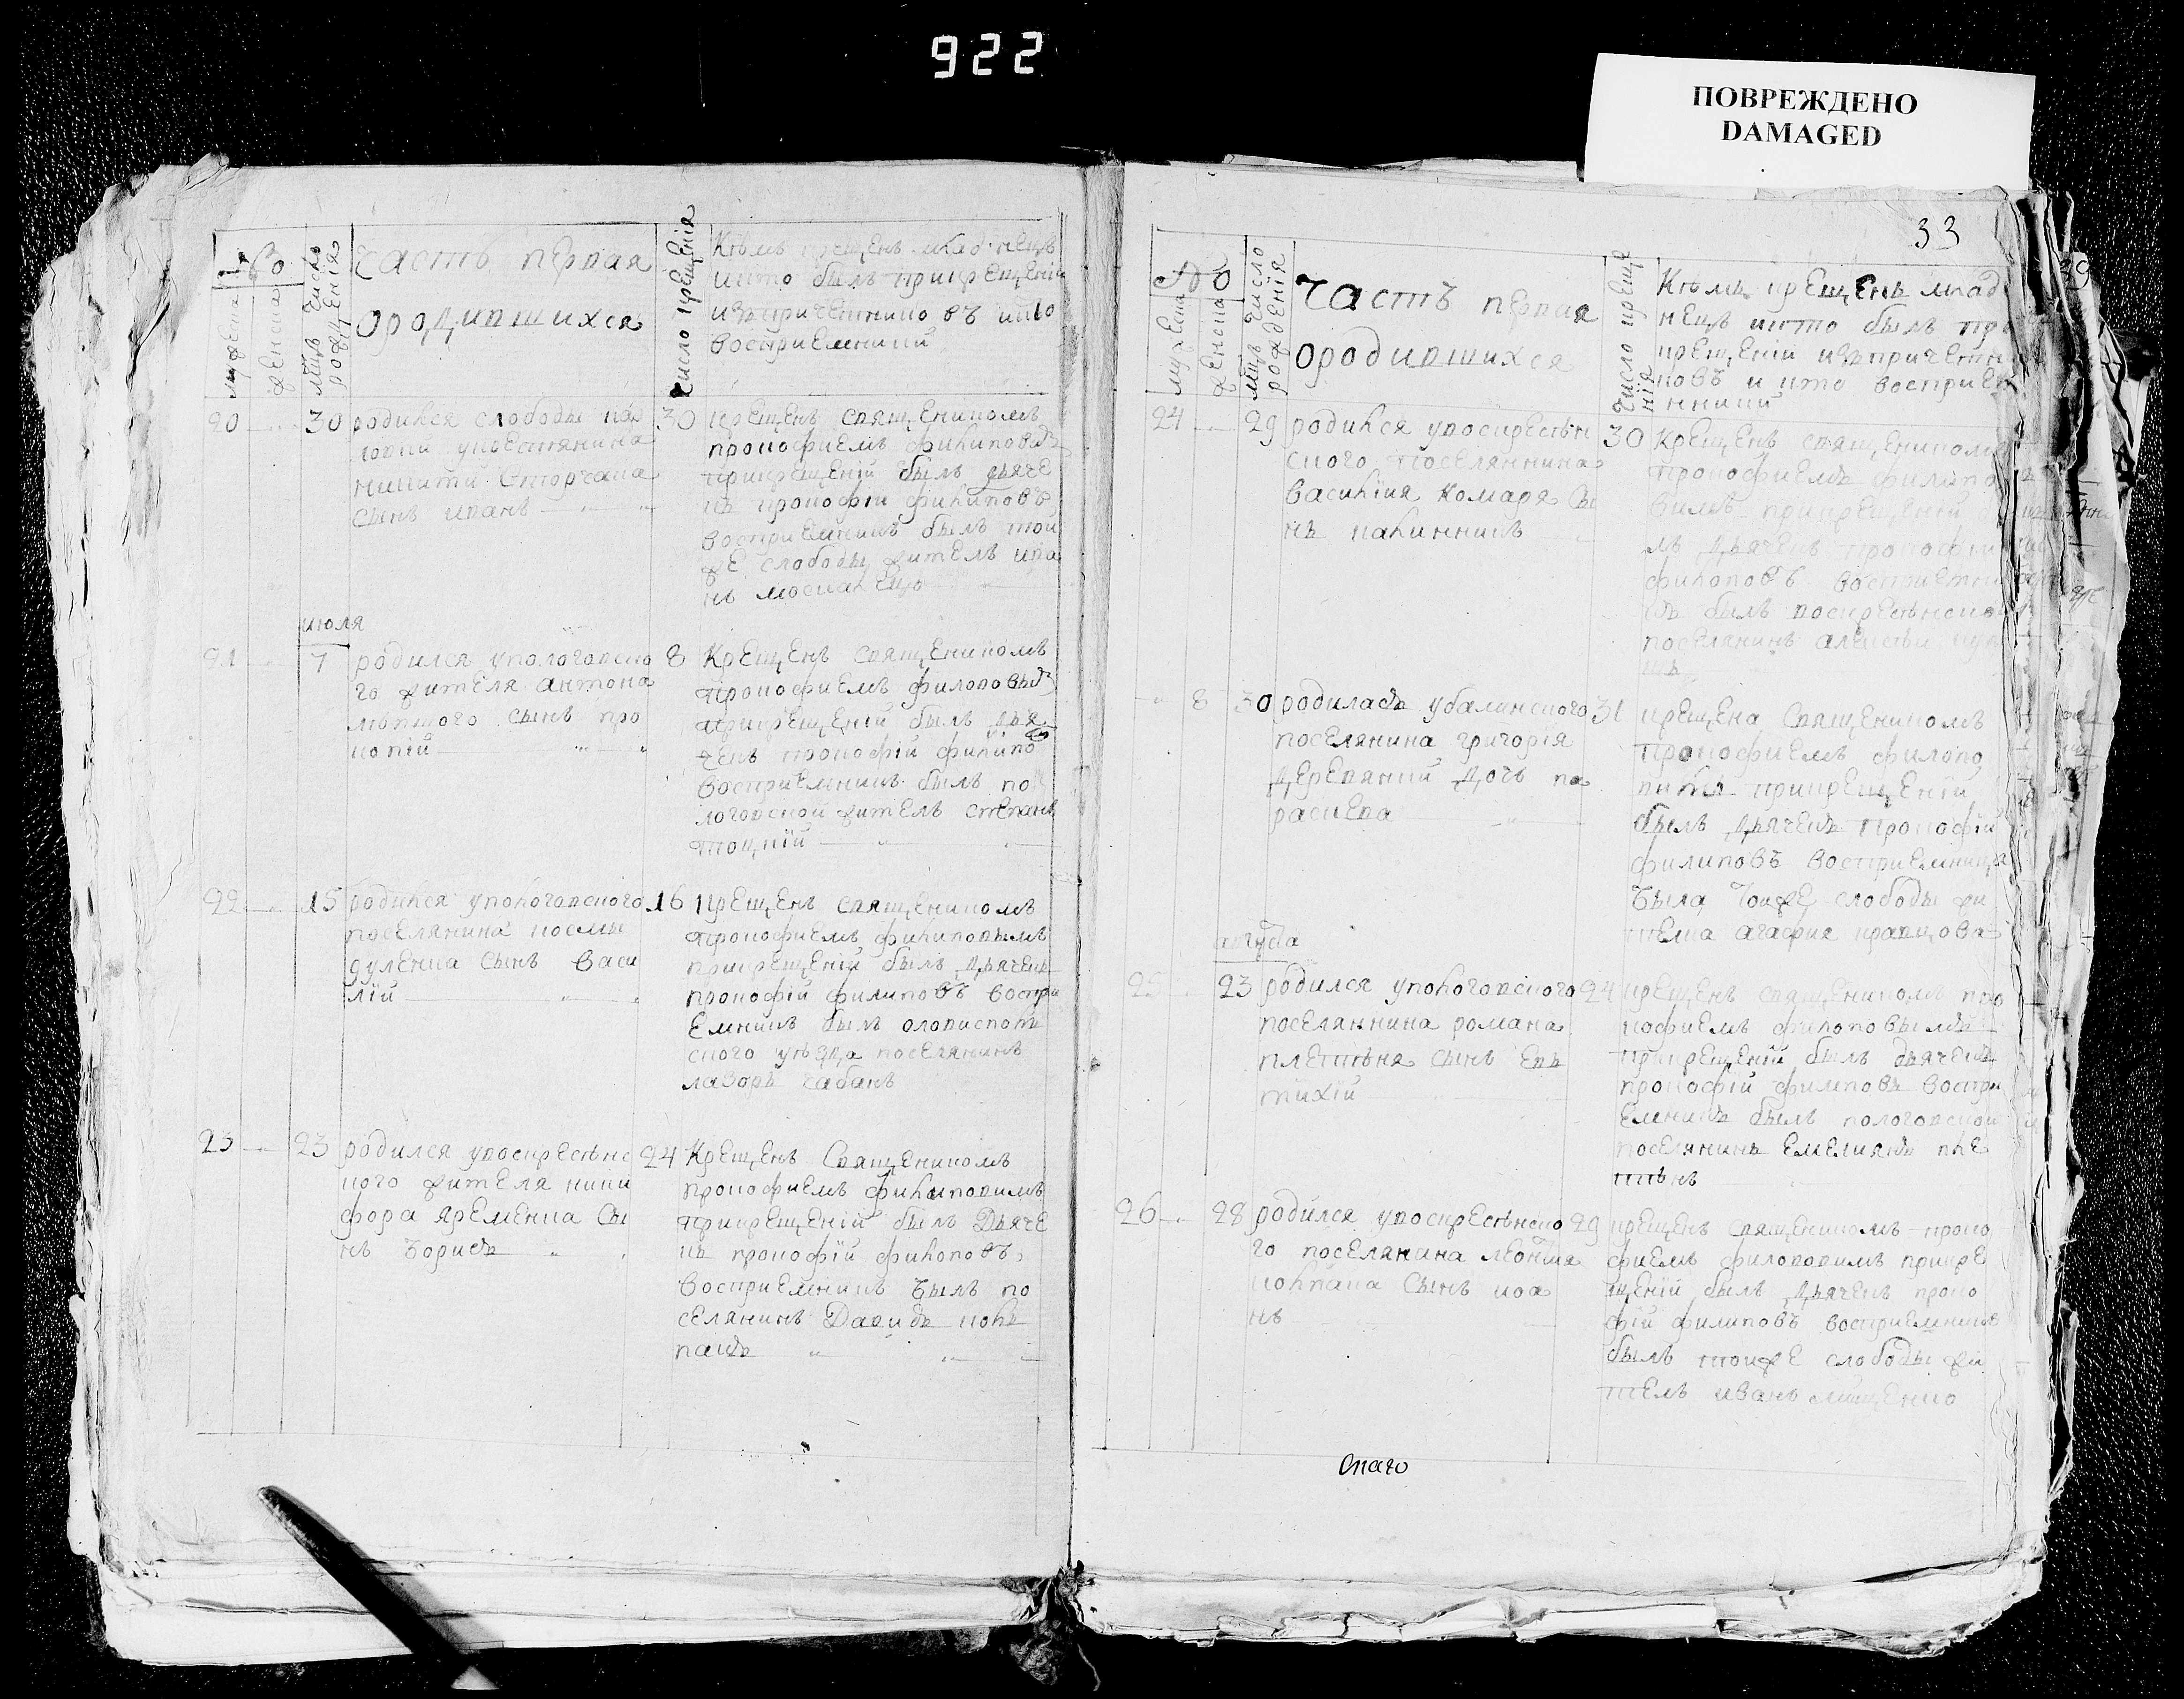 922
ПОВРЕЖДЕНО
DAMAGED
33
№
мужеска
женска
мцъ число
рожденія
часть первая
ородившихся
число крещенія
Кѣмъ крещенъ млад нецъ
икто былъ прикрещеніи
изъпричетнико въ икто
восприемникй
20 30 родился слободы по
логки
никити Сторчака
сынъ иванъ
30 крещенъ священикомъ
прокофиемъ филиповы
прикрещеній былъ дьяче
къ прокофи филиповъ
восприемникъ былъ той
же слободы жителъ ива
нъ
июля
21 7 родился упологовско
го жителя антона
сынъ про
копій
8 Крещенъ священикомъ
прокофиемъ филоповы
прикрещеній былъ дья
чекъ прокофій филипо
восприемникъ былъ по
логовской жителъ степанъ
22 15 родился упологовского
поселянина космы
дуленка сынъ васи
лій
16 крещенъ священикомъ
прокофиемъ филиповымъ
прикрещеній былъ дьячекъ
прокофій филиповъ воспри
емникъ былъ
ского уѣзда поселянинъ
лазорь чабанъ
23 23 родился увоскресѣнс
кого жителя ники
фора яременка сы
нъ борисъ
24 Крещенъ Священикомъ
прокофиемъ филиповимъ
прикрещеній былъ Дьяче
къ прокофій филоповъ
восприемникъ былъ по
селянинъ Давидъ колъ
пакъ
№
мужеска
женска
мцъ число
рожденія
часть первая
ородившихся
число креще
нія
Кѣмъ крещенъ млад
нецъ икто былъ при
крещеній изъпричетн
ковъ и кто восприем
нникй
24 29 родился увоскресѣн
ского поселяннина
василия комаря сы
нъ калинникъ
30 Крещенъ священикомъ
прокофиемъ филипо
вимъ прикрещеній
лъ дьячекъ прокофи
филоповъ восприемни
къ былъ воскресѣнско
поселянинъ алексѣи
8 30 родиласъ убалинского
поселянина григорія
деревянкй дочъ па
раскева
31 крещена Священикомъ
прокофиемъ филопо
прикрещеній
былъ дьячекъ прокофій
филиповъ восприемница
была тойже слободы жи
телка агафия кравцова
августа
25 23 родился упологовского
поселяннина романа
плеттѣня сынъ евъ
тихій
24 крещенъ священикомъ про
кофиемъ филоповымъ
прикрещеній былъ дьячекъ
прокофій филиповъ воспри
емникъ былъ пологовской
поселянинъ емелиянъ пле
ттѣнъ
26 28 родился увоскресѣнско
го поселянина леонтия
колпака сынъ иоа
нъ
29 крещенъ священикомъ проко
фиемъ филоповимъ прикре
щеній былъ дьячекъ проко
фій филиповъ восприемникъ
былъ тоиже слободы жи
телъ иванъ